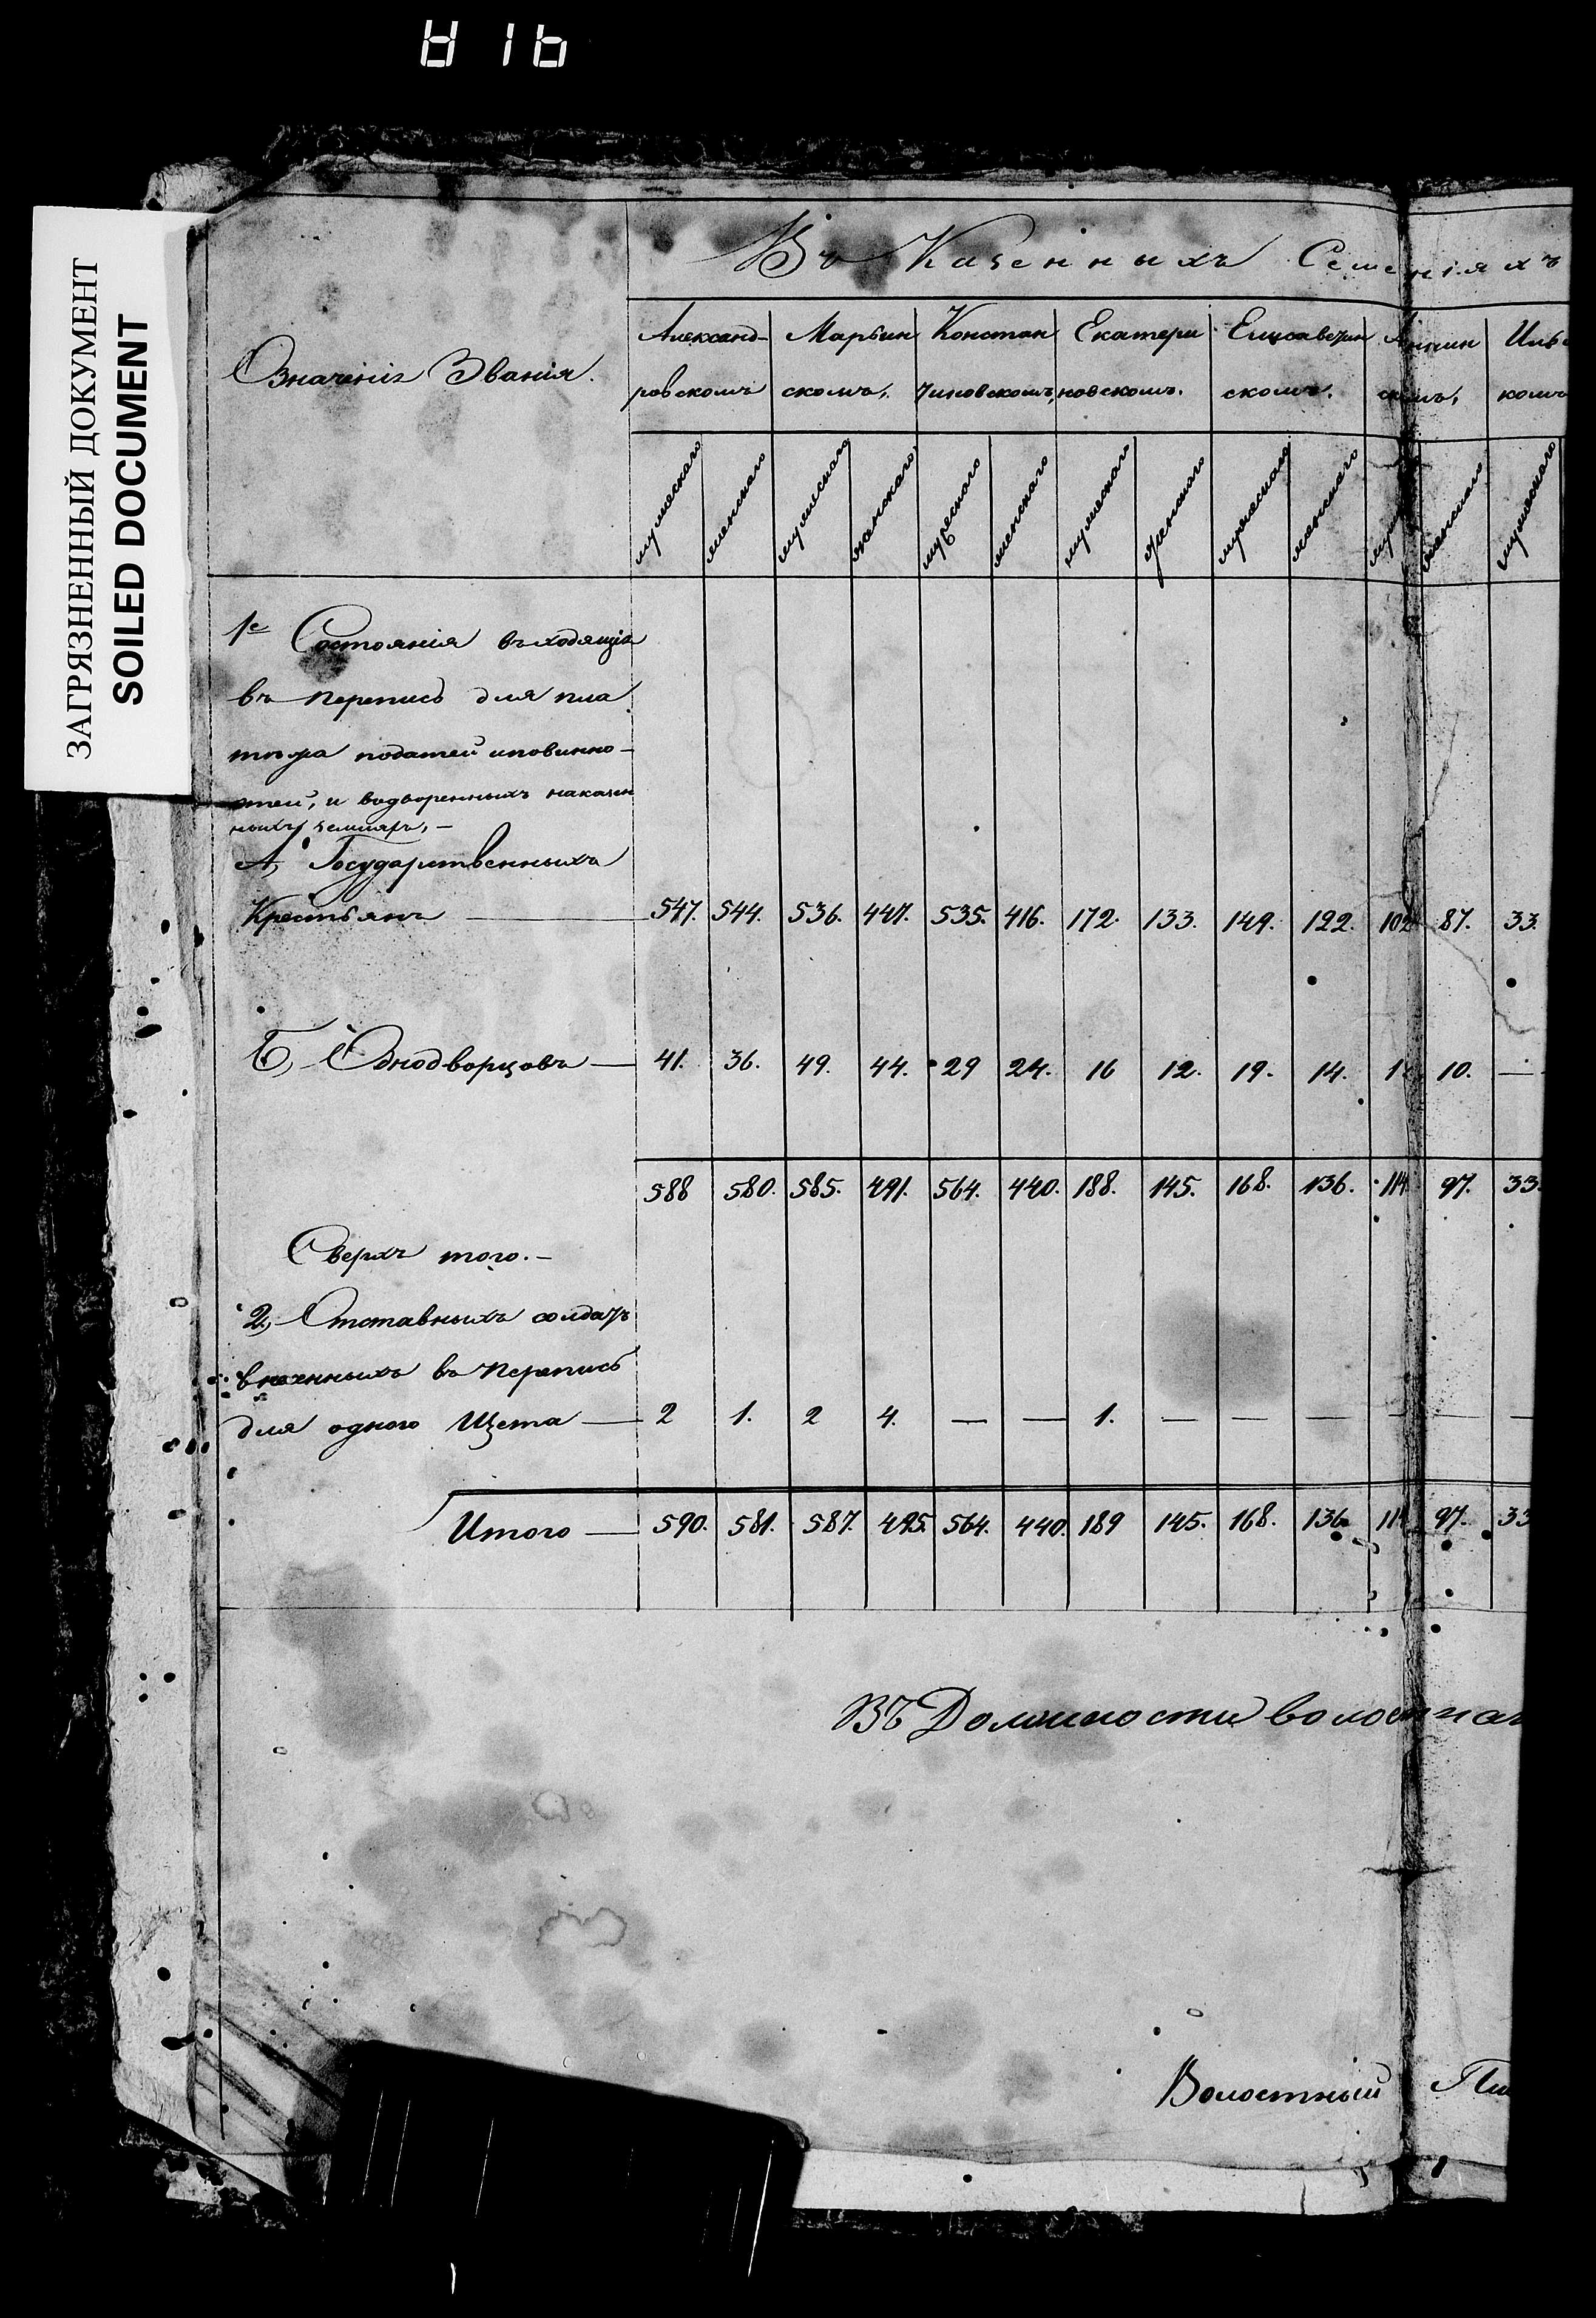 ЗАГРЯЗНЕННЫЙ ДОКУМЕНТ
SOILED DOCUMENT
Въ Казенныхъ Селеніяхъ
Означеніе Званія.
Александ- Марьин Констан Екатери Елисаветин Аннин Иль
ровскомъ скомъ, тиновскомъ, новскомъ. скомъ. скомъ, комъ
мужескаго женскаго мужескаго женскаго мужескаго женскаго мужескаго женскаго мужескаго женскаго женскаго мужескаго
1е Состоянія входящія
въ перепись для пла
тежа податей и повинно-
стей, и водворенныхъ на казен
ныхъ земляхъ, —
А, Государственныхъ
Крестьянъ — 547. 544. 536. 447. 535. 416. 172. 133. 149. 122. 102 87. 33.
Б, Однодворцовъ — 41. 36. 49. 44. 29 24. 16 12. 19. 14. 10. —
588 580. 585. 491. 564. 440. 188. 145. 168. 136. 114 97. 33.
Сверхъ того. —
2, Отставныхъ солдатъ
въ перепись
для одного Щета — 2 1. 2 4. — — 1. — — — — — —
Итого — 590. 581. 587. 495. 564. 440. 189 145. 168. 136 114 97. 33
ВЪ Должности волост
Волостный Пи